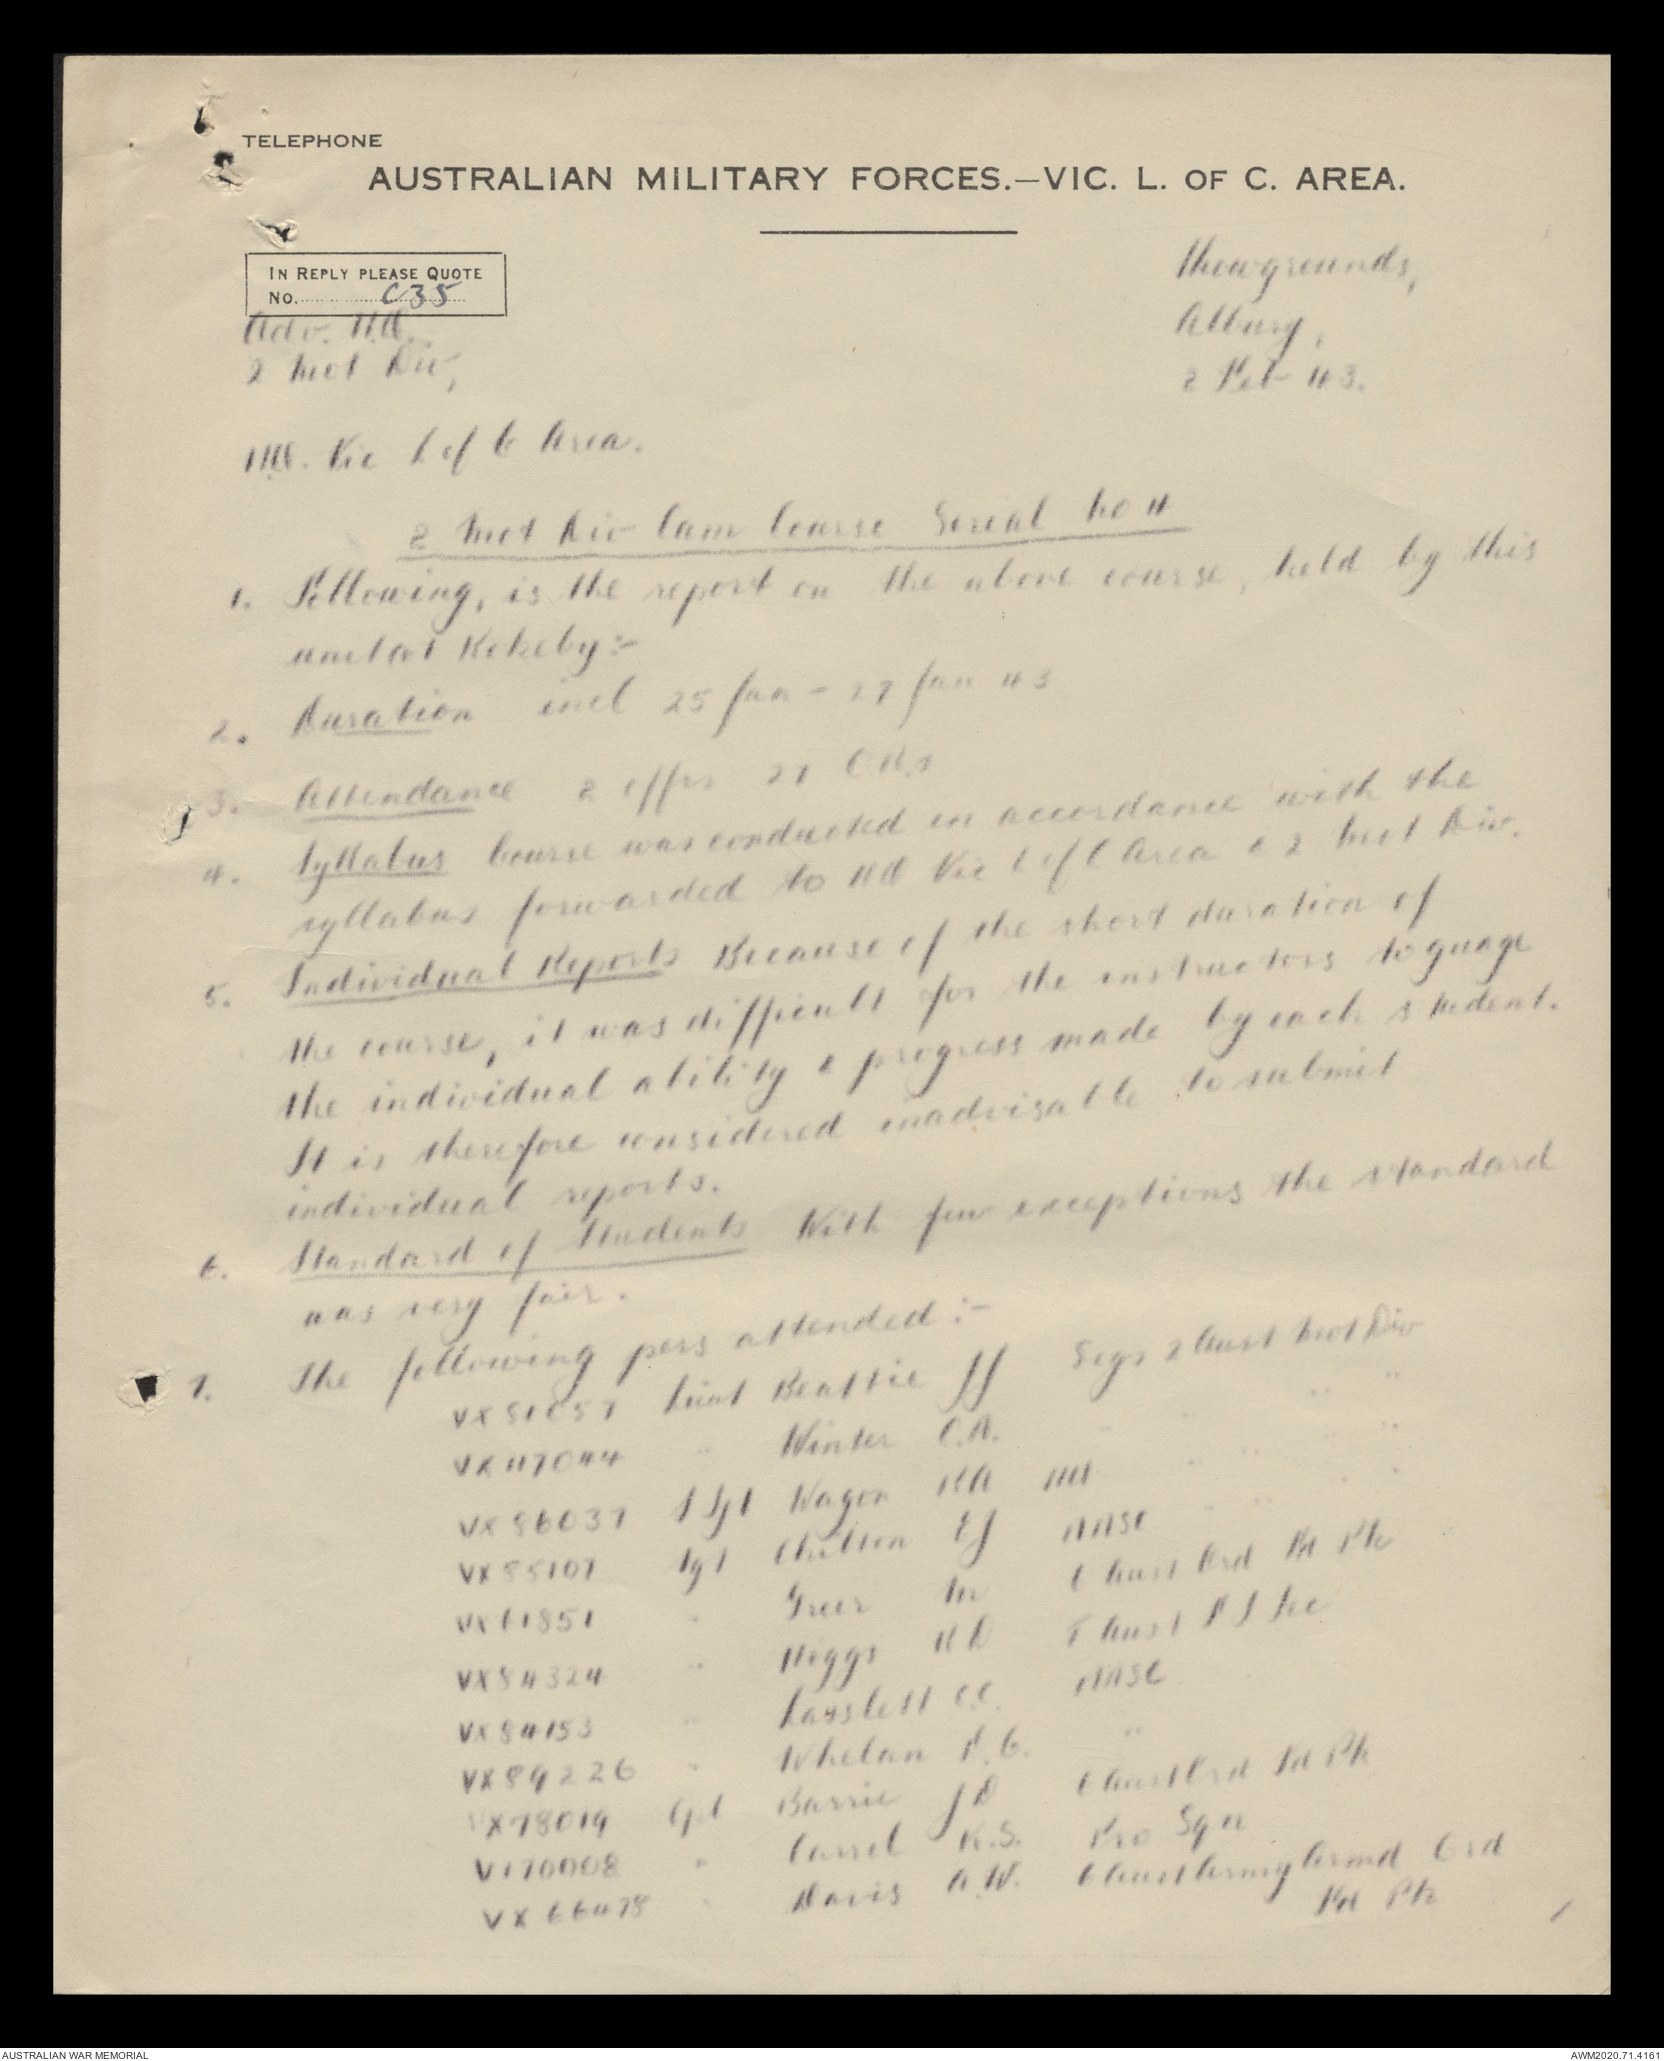 TELEPHONE
AUSTRALIAN MILITARY FORCES.—VIC. L. OF C. AREA.
IN REPLY PLEASE QUOTE
No. C35
Showgrounds,
Albury,
2 Feb 43.
Adv. HQ.
2 Mot Div,
HQ. Vic L of C Area.
2 Mot Div Cam Course Serial No 4
1. Following, is the report on the above course, held by this
unit at Rokeby:-
2. Duration incl 25 Jan - 27 Jan 43
3. Attendance 2 offrs 27 ORs
4. Syllabus Course was conducted in accordance with the
syllabus forwarded to HQ Vic L of C Area & 2 Mot Div.
5. Individual Reports Because of the short duration of
the course, it was difficult for the instructors to guage
the individual ability & progress made by each student.
It is therefore considered inadvisable to submit
individual reports.
6. Standard of Students With few exceptions the standard
was very fair.
7. The following pers attended :-
VX81057 Lieut Beattie JJ Sigs 2 Aust Mot Div
VX47044 " Winter C.A. " " " "
VX86037 S Sgt Wagon RA HQ " " " "
VX85107 Sgt Chilton EJ AASC " " " "
VX61851 " Greer M 6 Aust Ord Fd Pk
VX84324 " Higgs HD 8 Aust F S Sec
VX84153 " Layslett C.C. AASC
VX89226 " Whelan P.G. "
VX78019 Cpl Barrie JD 6 Aust Ord Fd Pk
V170008 " Carrel K.S. Pro Sqn
VX66478 " Davis A.W. 6 Aust Army Armd Ord
Fd Pk
AUSTRALIAN WAR MEMORIAL
AWM2020.71.4161